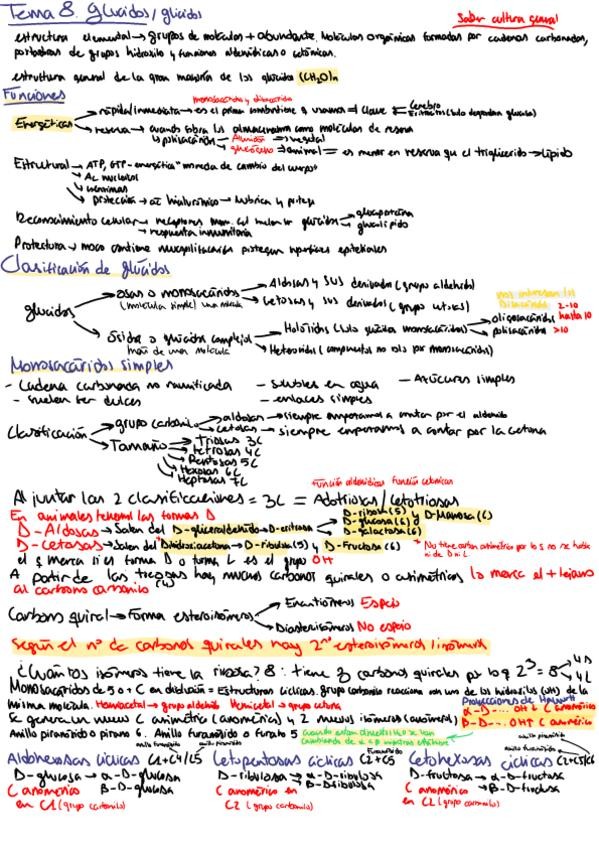 Tema 8. Glúcidos/glícidos
Saber cultura general
estructura elemental → grupos de moléculas + abundante. Moléculas orgánicas formadas por cadenas carbonadas,
portadoras de grupos hidroxilo y funciones aldehídicas o cetónicas.
estructura general de la gran mayoría de los glúcidos (CH2O)n
Funciones
monosacáridos y disacáridos
Energéticas
rápida/inmediata → es el primer combustible q usamos → clave
Cerebro
Eritrocitos (solo dependen glucosa)
reserva → cuando sobra los almacenamos como moléculas de reserva
↳ polisacáridos
Almidón → vegetal
glucógeno → animal → es menor en reserva que el triglicérido → lípido
Estructural → ATP, GTP - energética "moneda de cambio del cuerpo"
Ac nucleicos
protección → ac hialurónico → lubrica y protege
Reconocimiento celular
glucoproteína
glucolípido
respuesta inmunitaria
Protectora → moco contiene
protegen superficies epiteliales
Clasificación de glúcidos
glúcidos
osas o monosacáridos
(molécula simple) una molécula
Aldosas y sus derivados (grupo aldehído)
Cetosas y sus derivados (grupo cetosas)
Ósidos o glúcidos complejos
más de una molécula
Holósidos (solo
monosacáridos)
nos interesan los
Disacáridos 2-10
oligosacáridos hasta 10
polisacáridos >10
Heterósidos (compuestos no solo por monosacáridos)
Monosacáridos simples
- Cadena carbonada no ramificada
- Solubles en agua
- Azúcares simples
- suelen ser dulces
- enlaces simples
Clasificación
grupo carbonilo
aldosas → siempre empezamos a contar por el aldehído
Cetosas → siempre empezamos a contar por la cetona
Tamaño
Triosas 3C
tetrosas 4C
Pentosas 5C
Hexosas 6C
Heptosas 7C
Función aldehídicas Función cetónicas
Al juntar las 2 clasificaciones = 3C = Aldotriosas/Cetotriosas
En animales tenemos las formas D
D-Aldosas → Salen del D-gliceraldehído → D-eritrosa
D-ribosa (5)
D-glucosa (6) y D-Manosa (6)
D-galactosa (6)
D-Cetosas → Salen del * Dihidroxiacetona → D-ribulosa (5) y D-Fructosa (6)
* No tiene carbon asimétrico por lo q no se habla
ni de D ni L
el q marca si es forma D o forma L es el grupo OH
A partir de las triosas hay muchos carbonos quirales o asimétricos lo marca el + lejano
al carbono carbonilo
Carbono quiral → Forma estereoisómeros
Enantiómeros Espejo
Diasterisómeros No espejo
Según el nº de carbonos quirales hay 2^n estereoisómeros/isómeros
¿Cuántos isómeros tiene la ribosa? 8: tiene 3 carbonos quirales por lo q 2³ = 8
4D
4L
Monosacáridos de 5 o + C en disolución = Estructuras cíclicas. grupo carbonilo reacciona con uno de los hidroxilos (OH) de la
misma molécula. Hemiacetal → grupo aldehído Hemicetal → grupo cetona
Proyecciones de Haworth
α-D-... OH ↓ C anomérico
β-D-... OH ↑ C anomérico
Se genera un nuevo C asimétrico (anomérico) y 2 nuevos isómeros (anómeros)
Anillo piranósido o pirano 6. Anillo furanósido o furano 5
anillo furanósido anillo piranósido
Furanósido
anillo piranósido
anillo furanósido
Aldohexosas cíclicas C1+C4/C5
Cetopentosas cíclicas C2+C5
Cetohexosas cíclicas C2+C5/C6
D-glucosa → α-D-Glucosa
β-D-Glucosa
D-ribulosa → α-D-ribulosa
β-D-ribulosa
D-fructosa → α-D-fructosa
β-D-fructosa
C anomérico
en C1 (grupo carbonilo)
C anomérico en
C2 (grupo carbonilo)
C anomérico
en C2 (grupo carbonilo)